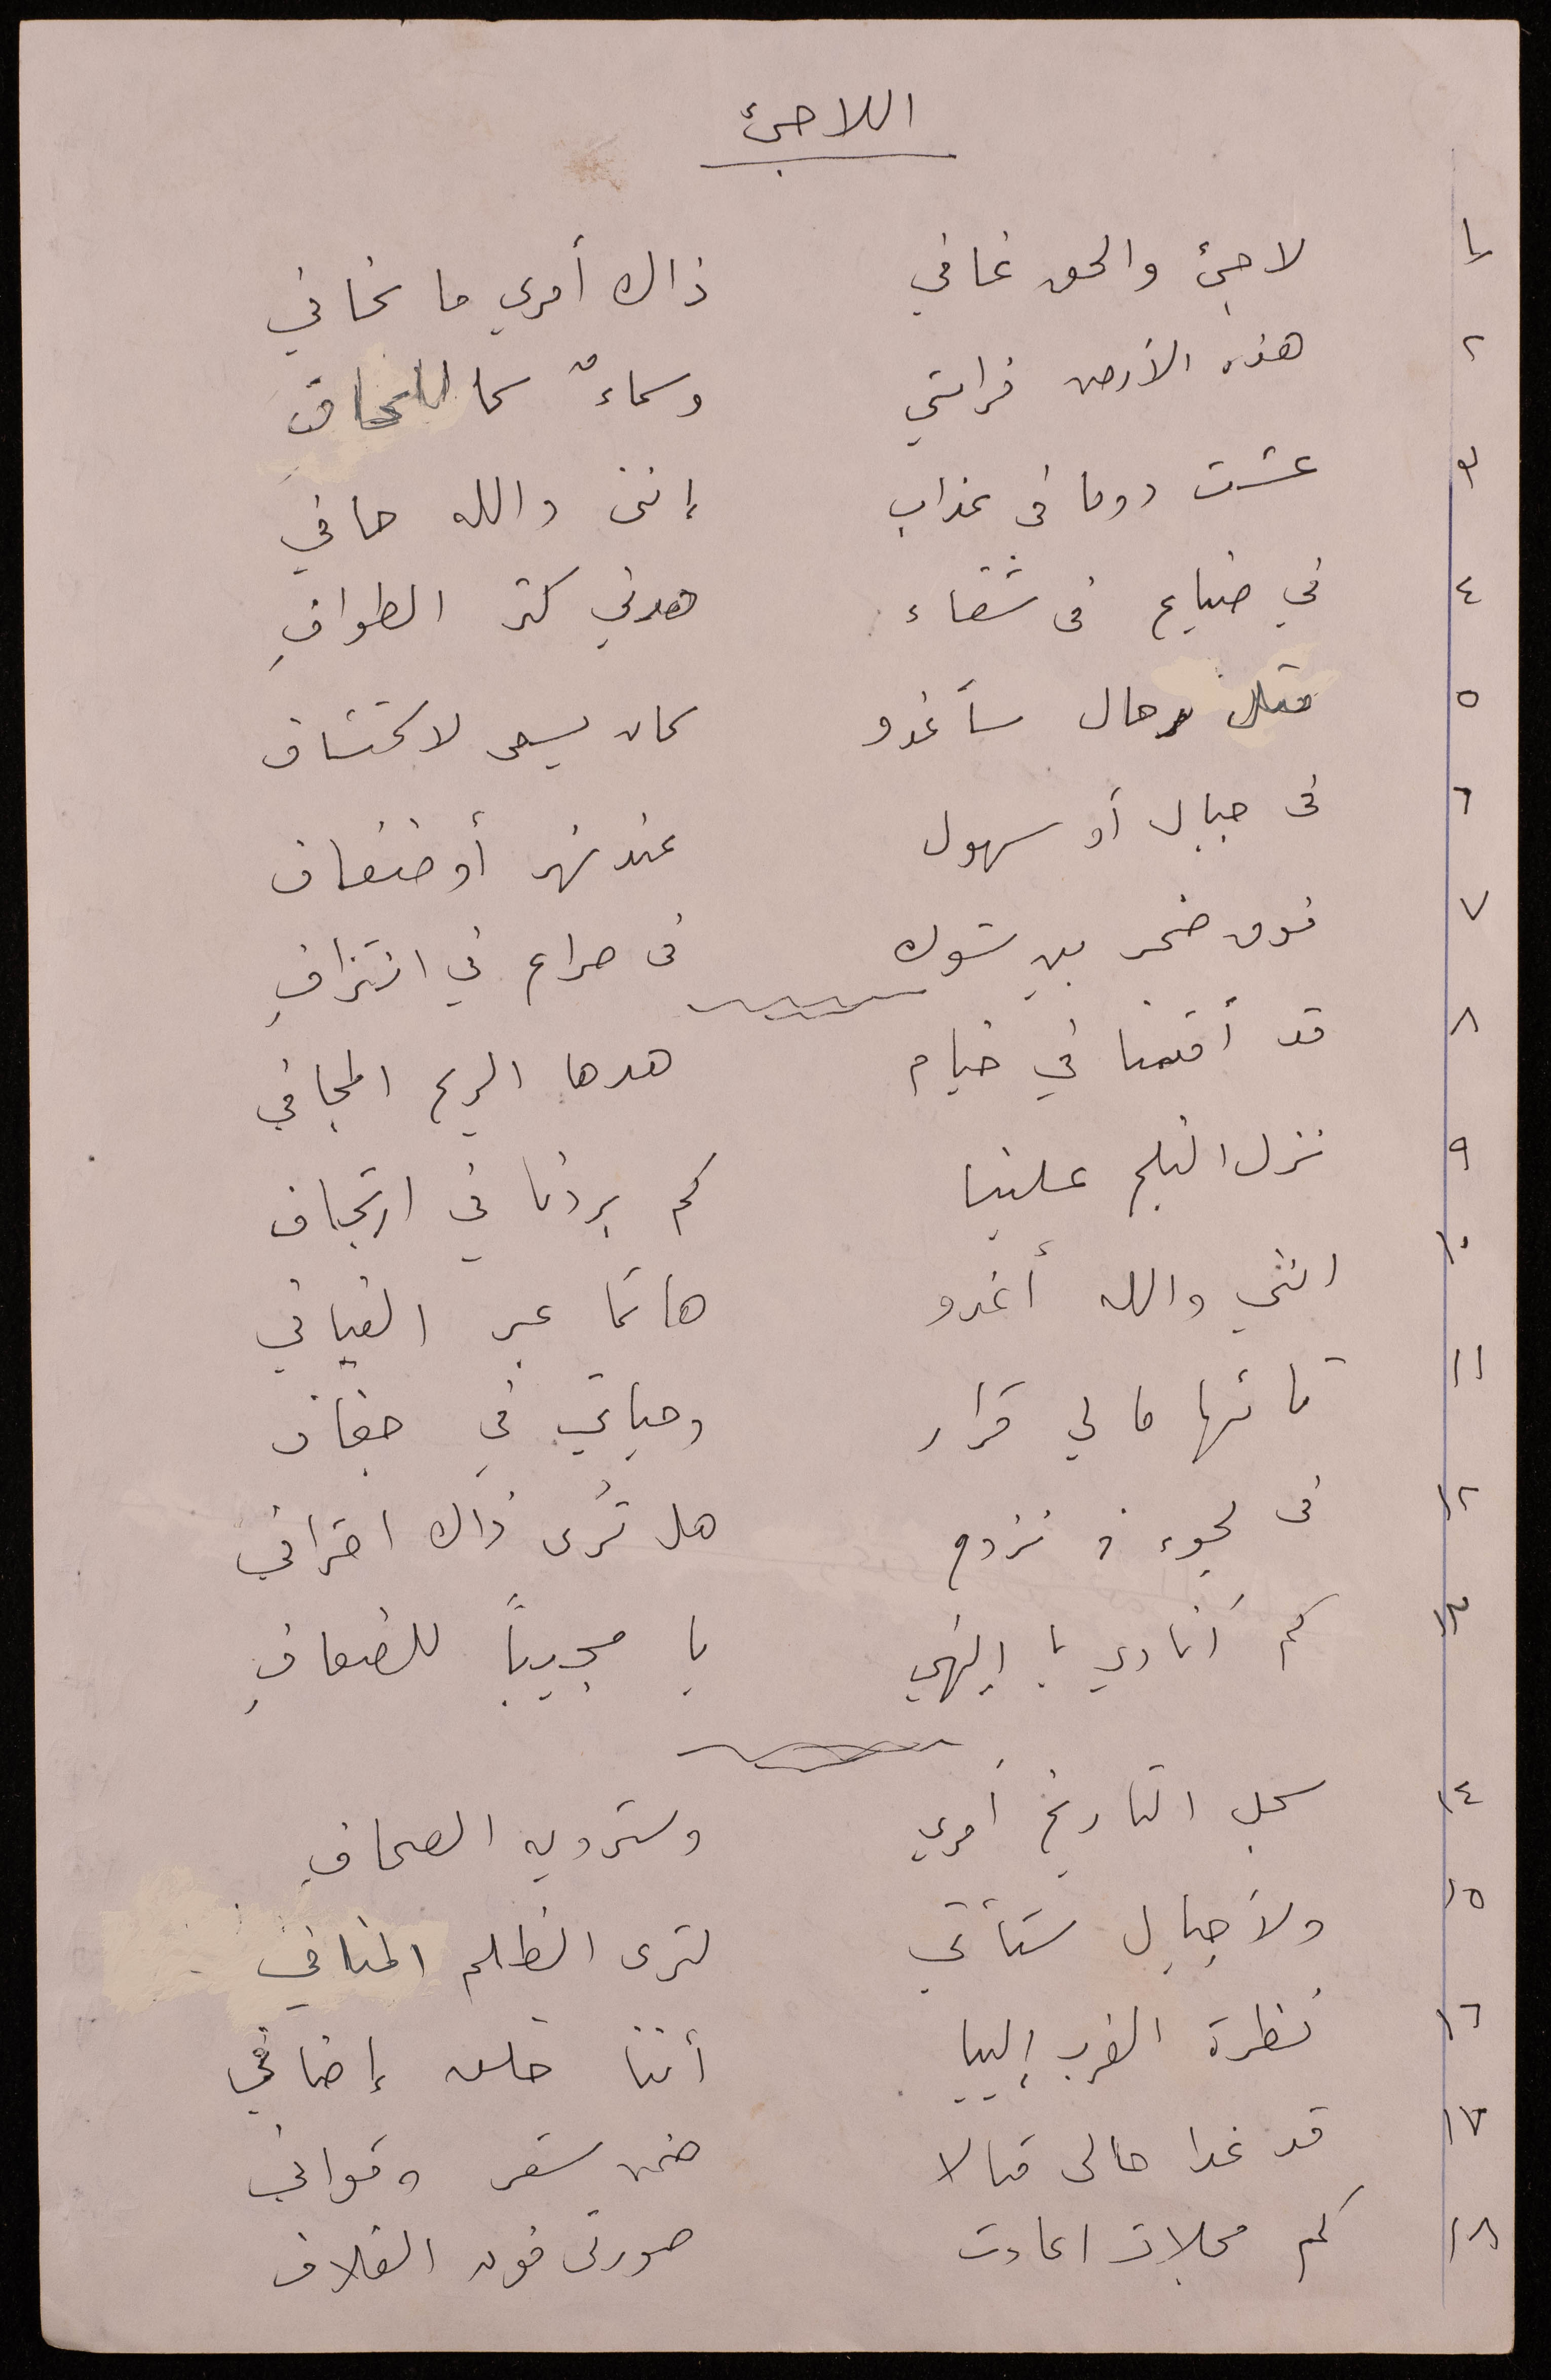 اللاجئ
١ لاجئ والحق غافي ذاك أمري ما نخافي
٢ هذه الأرض فراشي وسماءٌ كاللحاف
٣ عشت دوما في عذاب إنني والله حافي
٤ في ضياع في شقاء هدني كثر الطوافِ
٥ مثل رحال سأغدو كان يسعى لاكتشاف
٦ في جبال أو سهول عند نهر أو ضفاف
٧ فوق صخر بين شوك في صراع في انتزافِ
٨ قد أقمنا في خيام هدها الريح المجافي
٩ نزل الثلج علينا كم بردنا في ارتجاف
١٠ انني والله أغدو هائما عبر الفيافي
١١ تائها ما لي قرار وحياتي في جفاف
١٢ في لجوء و نزوح هل تُرى ذاك احترافي
١٣ كم أنادي يا إلهي يا مجيباً للضعافِ
١٤ سجل التاريخ أمري وسترويه الصحافِ
١٥ ولأجيال ستأتي لترى الظلم المنافي
١٦ نظرة الغرب إلينا أننا خلق إضافي
١٧ قد غدا حالى مثالا ضمن شعر وقوافي
١٨ كم مجلات اعادت صورتي فوق الغلاف